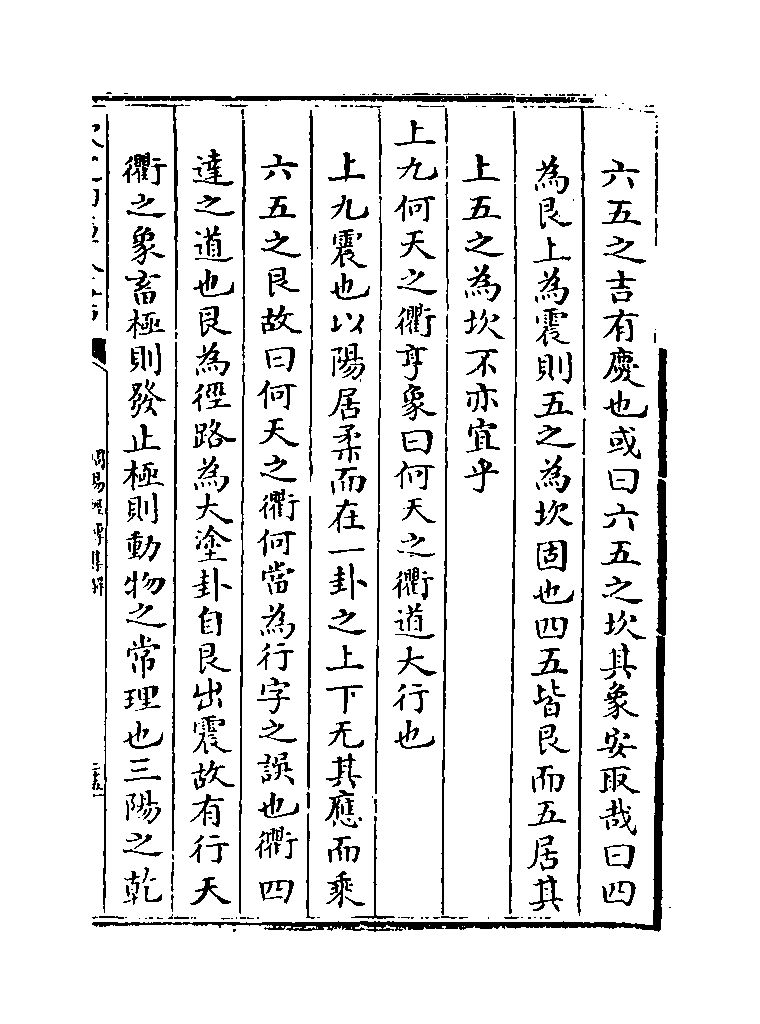 六五之吉有慶也或曰六五之坎其象安取哉曰四
為艮上為震則五之為坎固也四五皆艮而五居其
上五之為坎不亦宜乎
上九何天之衢亨象曰何天之衢道大行也
上九震也以陽居柔而在一卦之上下无其應而乘
六五之艮故曰何天之衢何當為行字之誤也衢四
達之道也艮為徑路為大塗卦自艮出震故有行天
衢之象畜極則發止極則動物之常理也三陽之乾